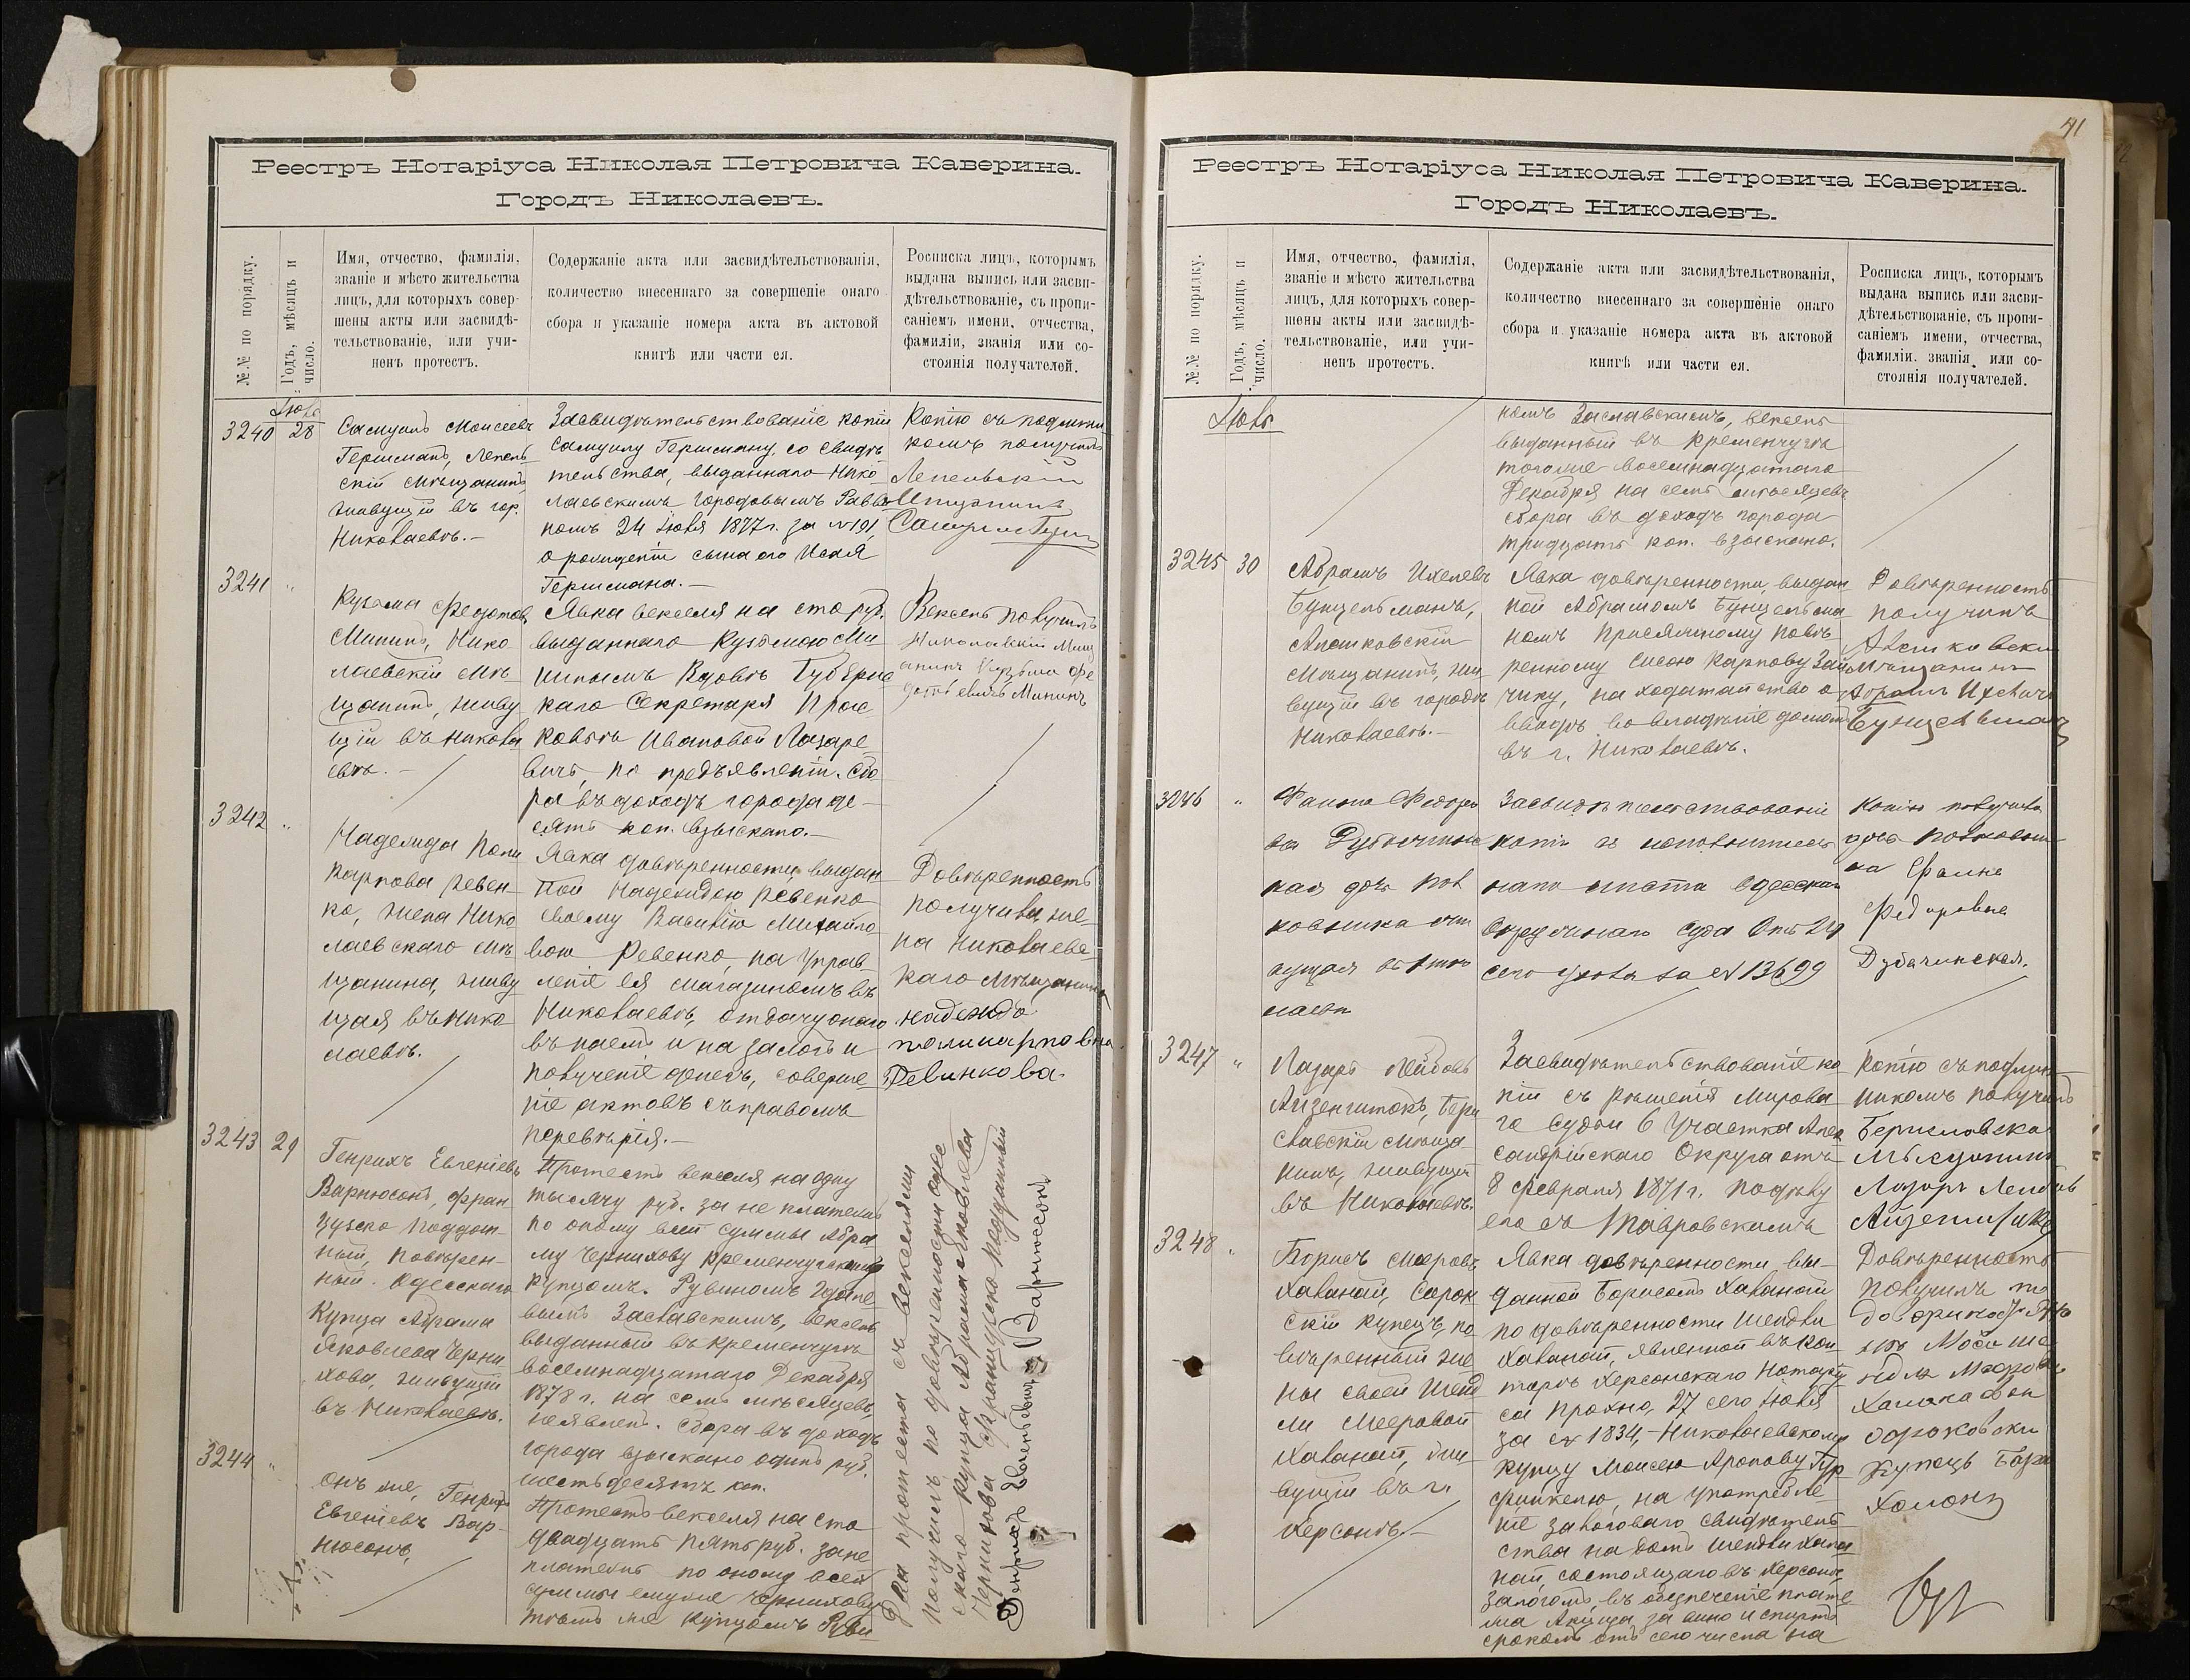 Реестръ Нотаріуса Николая Петровича Каверина.
Городъ Николаевъ.
№№ по порядку.
Годъ, мѣсяцъ и
число.
Имя, отчество, фамилія,
званіе и мѣсто жительства
лицъ, для которыхъ совер-
шены акты или засвидѣ-
тельствованіе, или учи-
ненъ протестъ.
Содержаніе акта или засвидѣтельствованія,
количество внесеннаго за совершеніе онаго
сбора и указаніе номера акта въ актовой
книгѣ или части ея.
Росписка лицъ, которымъ
выдана выпись или засви-
дѣтельствованіе, съ пропи-
саніемъ имени, отчества,
фамиліи, званія или со-
стоянія получателей.
3240
28
Самуилъ Моисеевъ
Гершманъ, Лепель-
скій мѣщанинъ,
живущій въ гор.
Николаевѣ.-
Засвидѣтельствованіе копіи
Самуилу Гершману, со свидѣ
тельства, выданнаго Нико-
лаевскимъ Городовымъ Равви
номъ 24 Іюня 1877 г. за №191,
о рожденіи сына его
Гершмана.-
Копію съ подлинни
комъ получилъ
Лепельскій
Мѣщанинъ
3241
"
Кузьма Федотовъ
Мининъ, Нико-
лаевскій мѣ-
щанинъ, живу
щій въ Никола
евѣ.-
Явка векселя на сто руб.
выданнаго Кузьмою Ми-
нинымъ Вдовѣ Губернс
каго Секретаря Прас
ковьѣ Ивановой Лазаре-
вичъ, по предъявленіи. Сбо
ра въ доходъ города де-
сять коп. взыскано.-
Вексель получилъ
Николаевскій Мещ
анинъ Кузьма Фе
дотьевичъ Мининъ
3242
"
Надежда Поли
карпова Ревен-
ко, жена Нико
лаевскаго мѣ-
щанина, живу
щая въ Нико
лаевѣ.
Явка довѣренности, выдан-
ной Надеждою Ревенко
своему Василію Михайло-
вою Ревенко, на управ-
леніе ея магазиномъ въ
Николаевѣ, отдачу онаго
въ наемъ и на залогъ и
полученіе денегъ, соверше-
ніе актовъ съ правомъ
перевѣрія.-
Довѣренность
получила же-
на Николаевс-
каго мѣщанина
надежда
поликарповна
Ревинкова
3243
29
Генрихъ Евгеніевъ
Варнюсонъ, фран
цузско поддан-
ный, повѣрен-
ный Одесскаго
Купца Абрама
Яковлева Черни
хова, живущій
въ Николаевѣ.
Протестъ векселя на одну
тысячу руб. за не платежъ
по оному всей суммы Абра
му Чернихову Кременчугскимъ
купцомъ Рувиномъ
вымъ Заславскимъ, вексель
выданный въ Кременчугѣ
восемнадцатаго Декабря
1878 г. на семь мѣсяцевъ,
неявленъ. Сбора въ доходъ
города взыскано одинъ руб.
шестьдесятъ коп.
Два протеста съ векселями
получилъ по довѣренности Одес
скаго купца Абрама Яковлева
Чернихова французско подданный
Варнюсонъ
3244
"
Онъ же, Генрихъ
Евгеніевъ Вар-
нюсонъ,
Протестъ векселя на сто
двадцать пять руб. за не
платежъ по оному всей
суммы ему же Чернихову
тѣмъ же купцомъ Руви
41
Реестръ Нотаріуса Николая Петровича Каверина.
Городъ Николаевъ.
№№ по порядку.
Годъ, мѣсяцъ и
число.
Имя, отчество, фамилія,
званіе и мѣсто жительства
лицъ, для которыхъ совер-
шены акты или засвидѣ-
тельствованіе, или учи-
ненъ протестъ.
Содержаніе акта или засвидѣтельствованія,
количество внесеннаго за совершеніе онаго
сбора и указаніе номера акта въ актовой
книгѣ или части ея.
Росписка лицъ, которымъ
выдана выпись или засви-
дѣтельствованіе, съ пропи-
саніемъ имени, отчества,
фамиліи. званія или со-
стоянія получателей.
номъ Заславскимъ, вексель
выданный въ Кременчугѣ
того же восемнадцатаго
Декабря на семь мѣсяцевъ
сбора въ доходъ города
тридцать коп. взыскано.
3245
30
Абрамъ Ихелевъ
Бунцельманъ,
Алешковскій
мѣщанинъ, жи-
вущій въ городѣ
Николаевѣ.-
Явка довѣренности, выдан
ной Абрамомъ Бунцельма
номъ присяжному повѣ-
ренному Карпову Зай
чику, на ходатайство о
вводѣ во владѣніе домомъ
въ г. Николаевѣ.
Довѣренность
получилъ
мѣщанинъ
Абрамъ
Бунцельманъ
3246
"
Фаина Федоро
ва Дубачинс
кая дочь пол
ковника
Засвидѣтельствованіе
копіи съ исполнитель
наго листа Одесскаго
Окружнаго Суда отъ 24
сего Іюля за № 13699
Копію получила
дочь полковни
ка Фаина
Федоровна
Дубачинская.
3247
"
Лазарь Лейбовъ
Айзенштокъ, Бери
славскій мѣща-
нинъ, живущій
въ Николаевѣ.
Засвидѣтельствованіе ко
піи съ рѣшенія Мирова
го Судьи 6 Участка Алек
сандрійскаго Округа отъ
8 февраля 1871 г. по дѣлу
его съ Тавровскимъ
Копію съ подлин-
никомъ получилъ
Бериславскій
Лазарь Лейбовъ
3248
"
Борисъ Мееровъ
Хаванай, Сорок
скій купецъ, по
вѣренный же
ны своей Шенд
ли Мееровой
Хаванай, жи
вущій въ г.
Херсонѣ.-
Явка довѣренности вы-
данной Борисомъ Хаванай
по довѣренности Шендли
Хаванай, явленной въ кон
торѣ Херсонскаго Нотарі
са Прохно, 27 сего Іюля
за № 1834,- Николаевскому
купцу Моисею Аронову Гур
финкелю, на употребле-
ніе залоговаго свидѣтель-
ства на домъ Шендли Хава
най, состоящаго въ Херсонѣ,
залогомъ, въ обезпеченіе плате
жа Акциза за вино и спиртъ
срокомъ отъ сего числа на
Довѣренность
получилъ по
купецъ